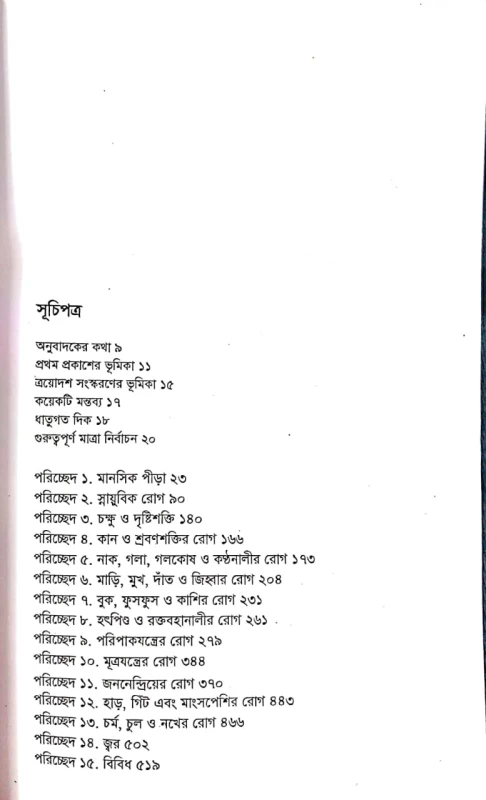 সূচিপত্র
অনুবাদকের কথা ৯
প্রথম প্রকাশের ভূমিকা ১১
ত্রয়োদশ সংস্করণের ভূমিকা ১৫
কয়েকটি মন্তব্য ১৭
ধাতুগত দিক ১৮
গুরুত্বপূর্ণ মাত্রা নির্বাচন ২০
পরিচ্ছেদ ১. মানসিক পীড়া ২৩
পরিচ্ছেদ ২. স্নায়ুবিক রোগ ৯০
পরিচ্ছেদ ৩. চক্ষু ও দৃষ্টিশক্তি ১৪০
পরিচ্ছেদ ৪. কান ও শ্রবণশক্তির রোগ ১৬৬
পরিচ্ছেদ ৫. নাক, গলা, গলকোষ ও কণ্ঠনালীর রোগ ১৭৩
পরিচ্ছেদ ৬. মাড়ি, মুখ, দাঁত ও জিহ্বার রোগ ২০৪
পরিচ্ছেদ ৭. বুক, ফুসফুস ও কাশির রোগ ২৩১
পরিচ্ছেদ ৮. হৃৎপিণ্ড ও রক্তবহানালীর রোগ ২৬১
পরিচ্ছেদ ৯. পরিপাকযন্ত্রের রোগ ২৭৯
পরিচ্ছেদ ১০. মূত্রযন্ত্রের রোগ ৩৪৪
পরিচ্ছেদ ১১. জননেন্দ্রিয়ের রোগ ৩৭০
পরিচ্ছেদ ১২. হাড়, গিঁট এবং মাংসপেশির রোগ ৪৪৩
পরিচ্ছেদ ১৩. চর্ম, চুল ও নখের রোগ ৪৬৬
পরিচ্ছেদ ১৪. জ্বর ৫০২
পরিচ্ছেদ ১৫. বিবিধ ৫১৯